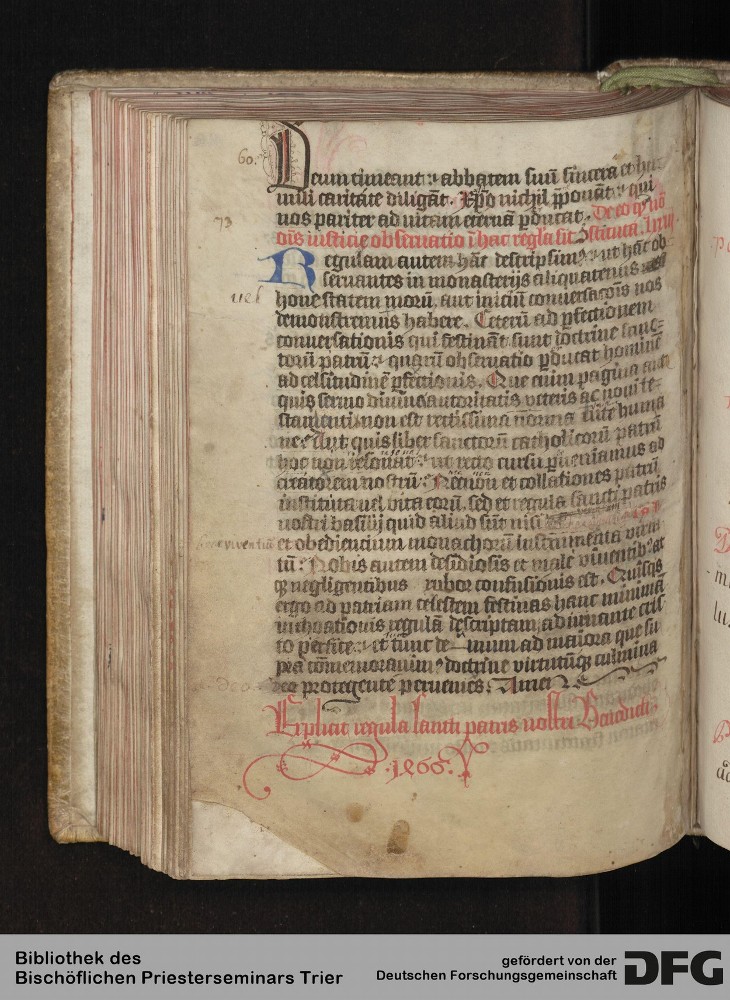 60.
Deum timeant: abbatem suū sincera et hu
mili caritate diligāt. Xp̄o nichil p̄ponāt: qui
nos pariter ad vitam eternā p̱ducat. De eo q̱ nō
73
oīs iusticie obseruatio ī hac regla sit ɔstituta. lxxiij
Regulam autem hāc descripsim⁹: ut hāc ob
seruantes in monasterijs aliquatenus
uel
honestatem morū, aut iniciū conuersacōis nos
demonstremus habere. Ceterū ad p̱fectionem
conuersationis qui festināt: sunt doctrine sanc-
torū patrū: quarū obseruatio p̱ducat hominē
ad celsitudinē p̱fectionis. Que enim pagina aut
quis sermo diuine auctoritatis veteris ac noui te-
stamenti: non est rectissima norma vite huma
ne? Aut quis liber sanctorū catholicorū patrū
hoc non resonat: ut recto cursu p̱ueniamus ad
creatorem nostrū? Necnon et collationes patrū
instituta uel vita eorū, sed et regula sancti patris
nostri basilij quid aliud sūt nisi
bene viventiū et obediencium monachorū instrumenta virtu
tū? Nobis autem desidiosis et male viuentib⁹ at
q̱ negligentibus rubor confusionis est. Quisq̱s
ergo ad patriam celestem festinas hanc minimā
inchoationis regulā descriptam, adiuuante cris
to perfice: et tunc de- mum ad maiora que su
pra cōmemorauim⁹ doctrine virtutūq̱ culmina
deo protegente peruenies: Amen
Explicit regula sancti patris nostri Benedicti.
.1566.
Bibliothek des
Bischöflichen Priesterseminars Trier
gefördert von der
Deutschen Forschungsgemeinschaft
DFG